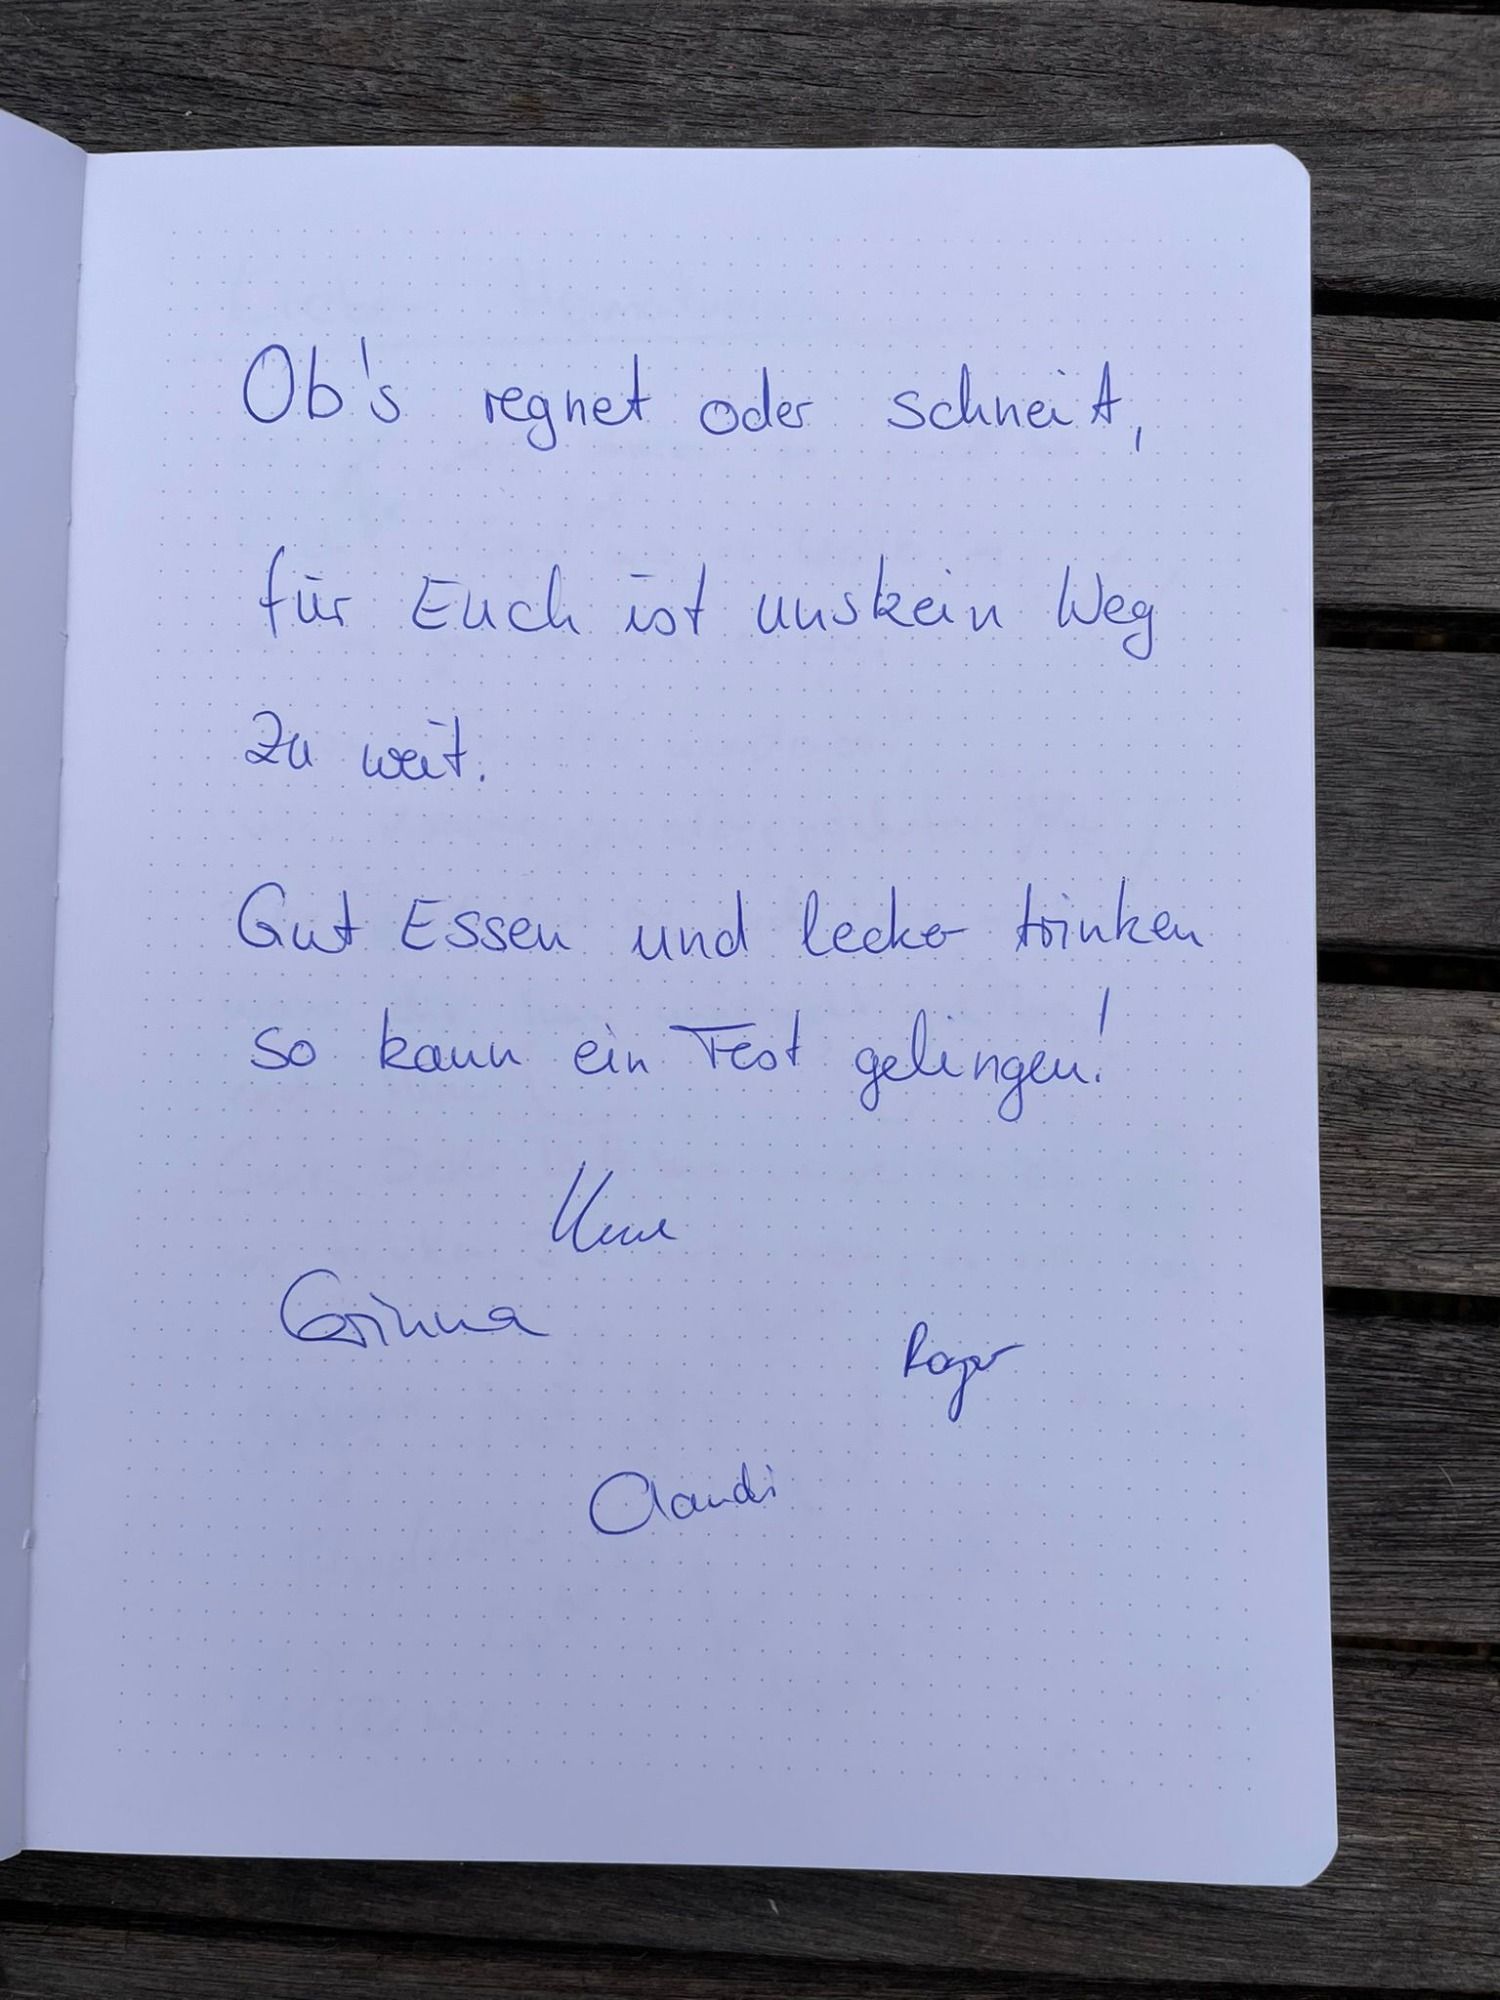 Ob's regnet oder schneit,
für Euch ist uns kein Weg
zu weit.
Gut Essen und lecker trinken
so kann ein Fest gelingen!
Corinna
Roger
Claudi